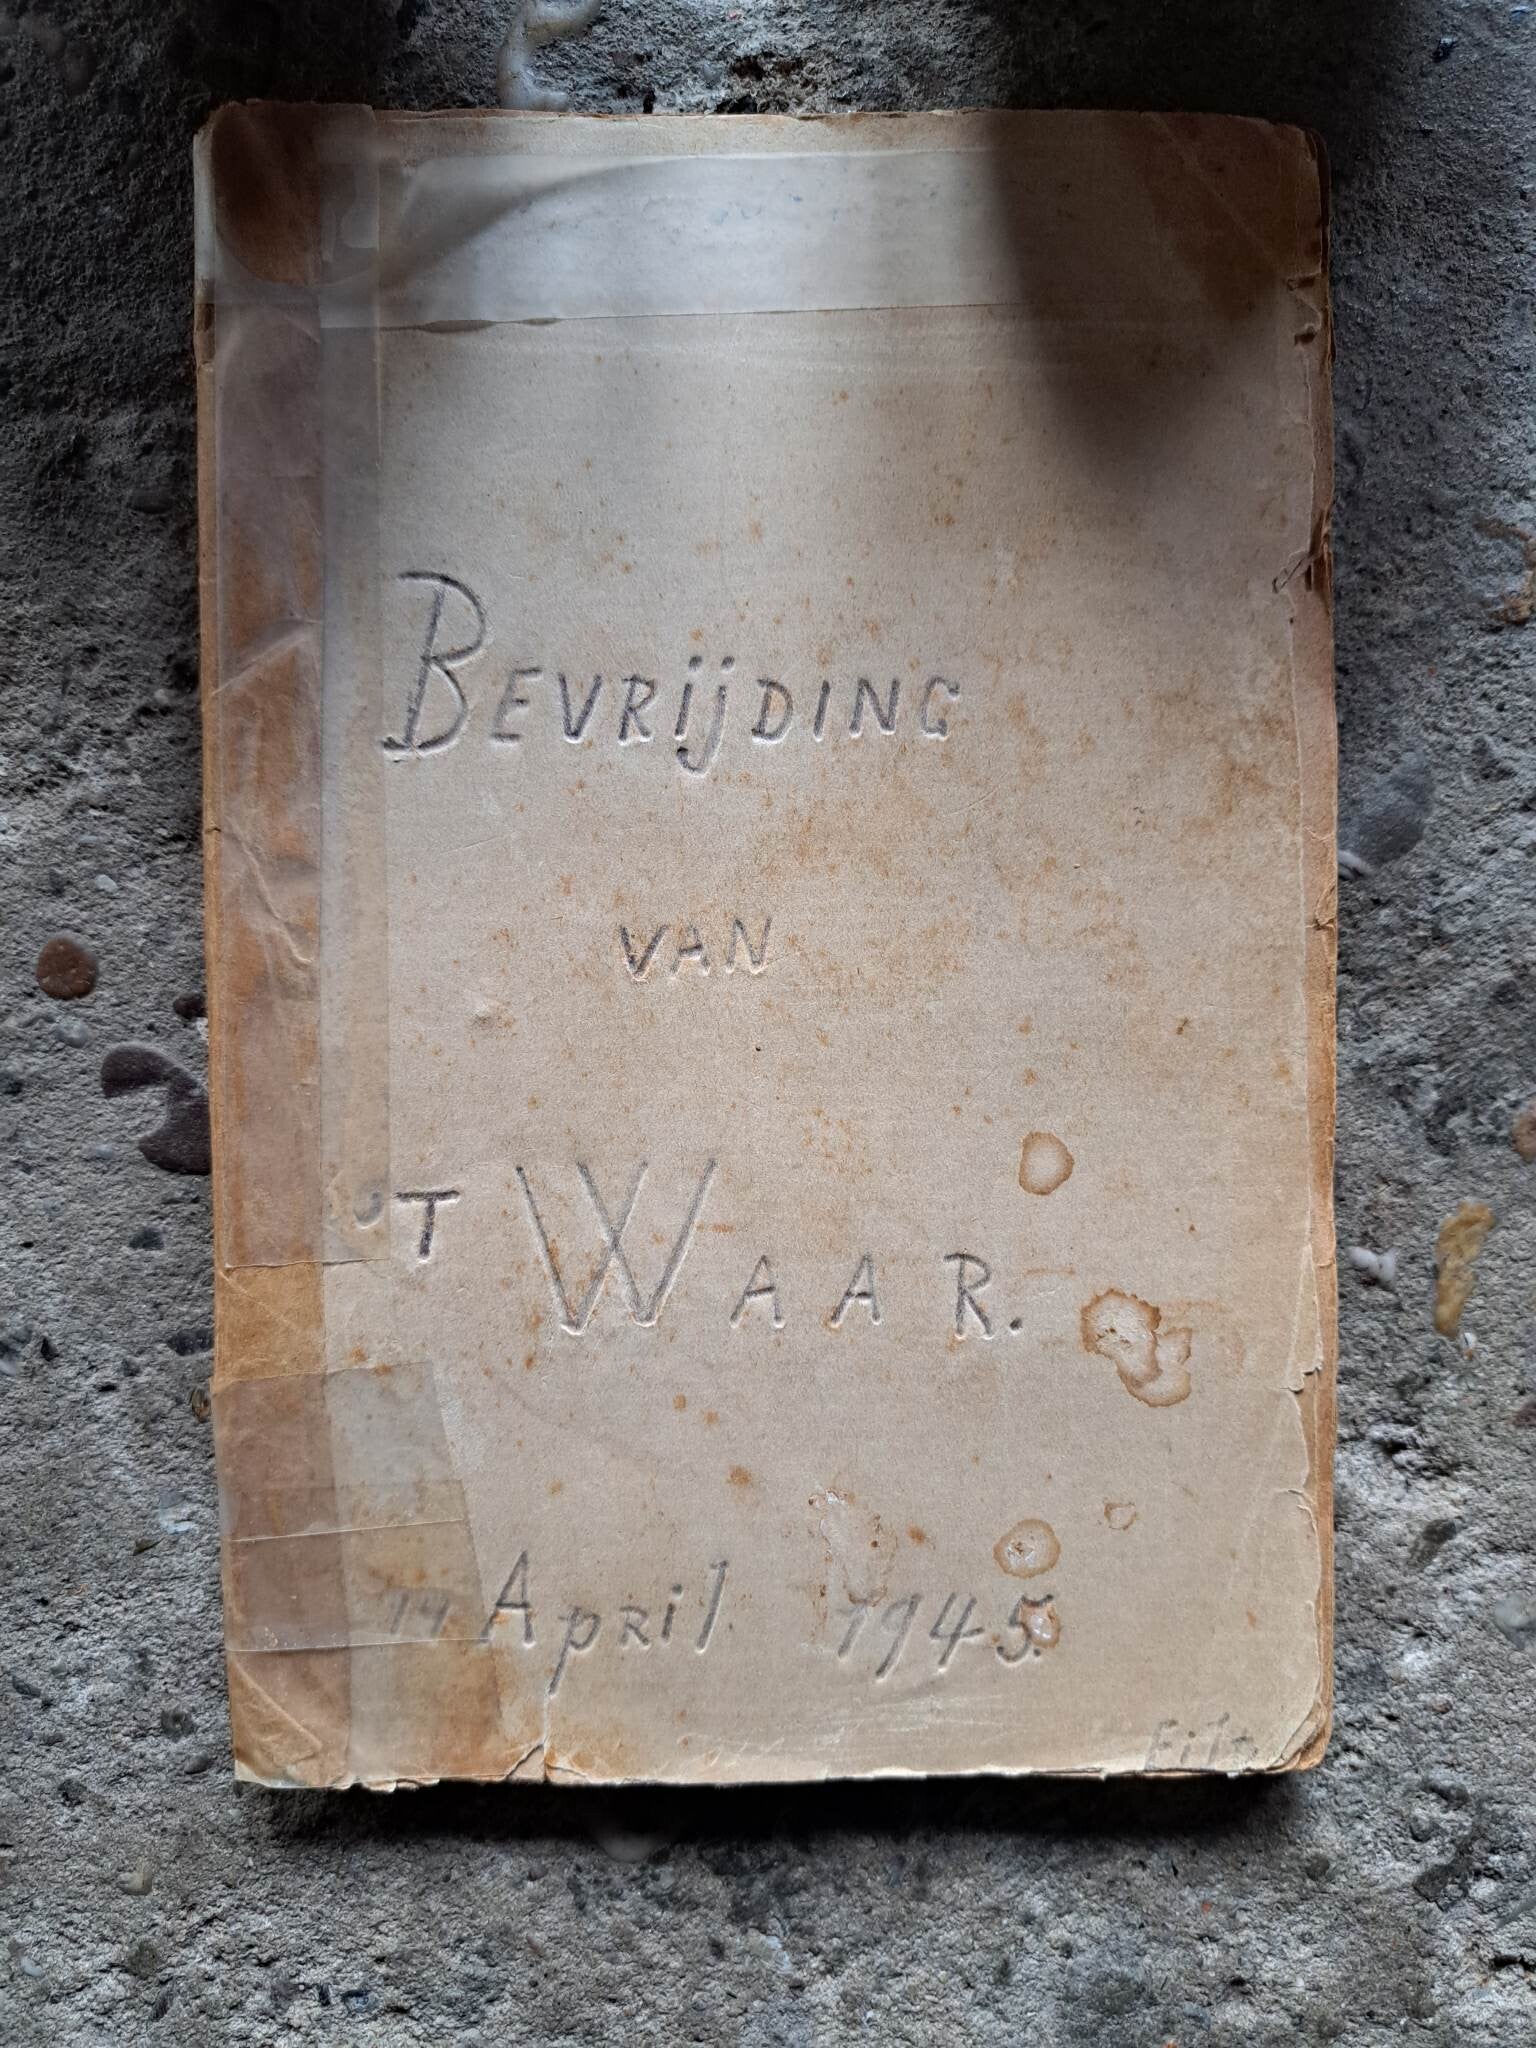 BEVRijDING
VAN
'T WAAR.
14 April 1945.